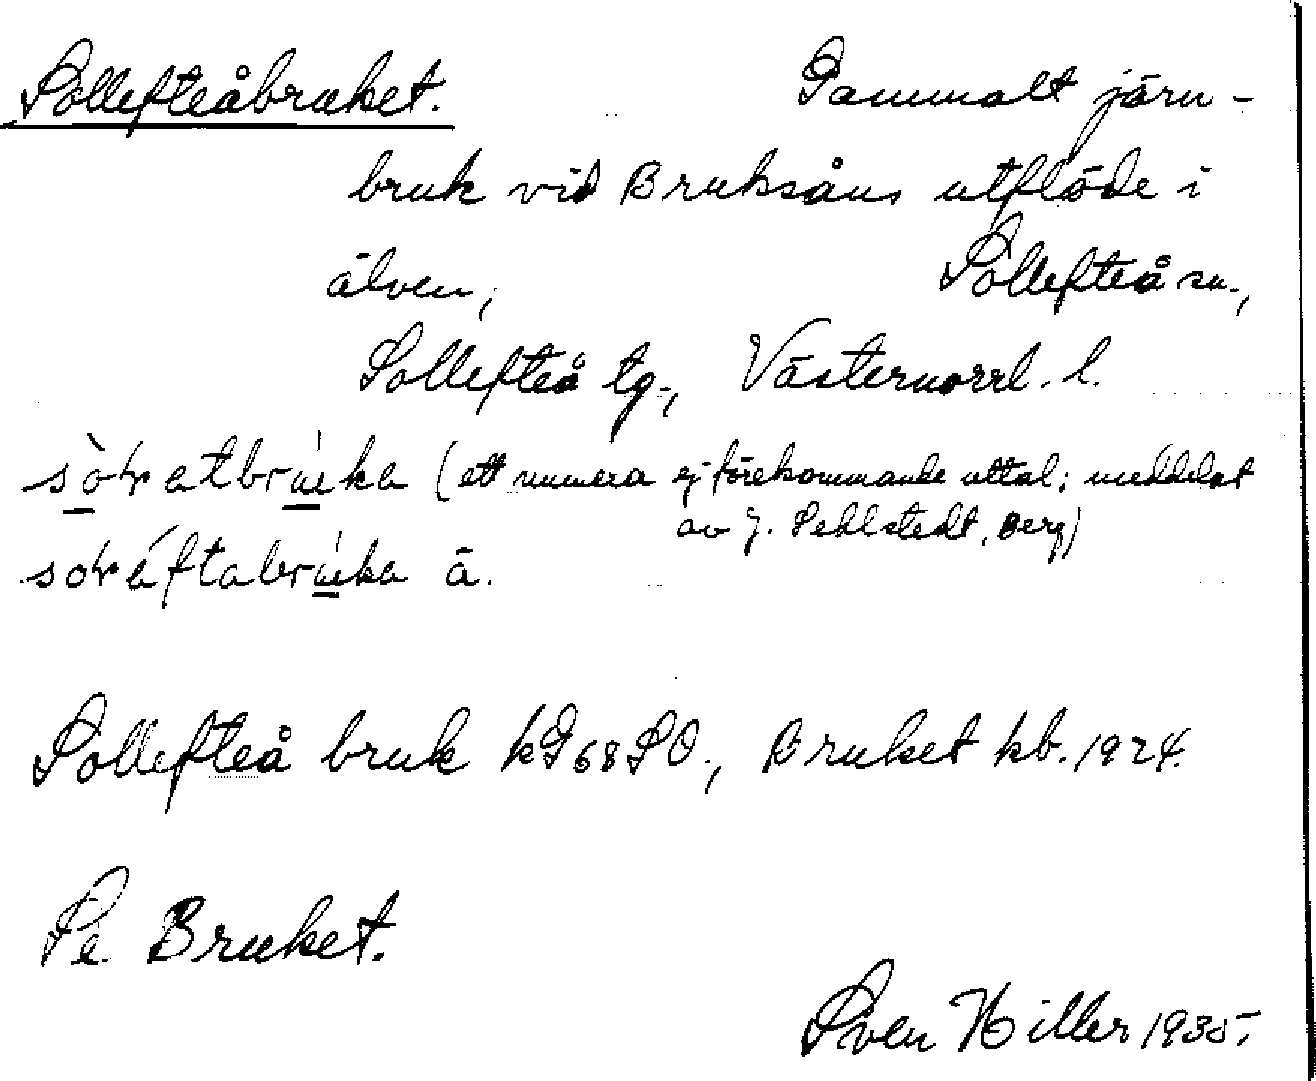 Sollefteåbruket. Gammalt järn-
bruk vid Bruksåns utflöde i
älven, Sollefteå sn.,
Sollefteå tg., Västernorrl. l.
(ett numera ej förekommande uttal; meddelat
av J. Sehlstedt, Berg)
ä.
Sollefteå bruk kG68SO., Bruket kb. 1924.
Se Bruket.
Sven Hiller 1935.